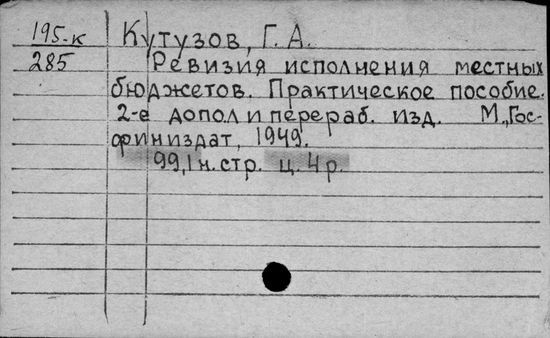 195-к Кутузов, Г. А.
285 Ревизия исполнения местных
бюджетов. Практическое пособие.
2-е допол и перераб. изд. М., Гос-
финиздат, 1949.
99, 1 н. стр. ц. 4 р.